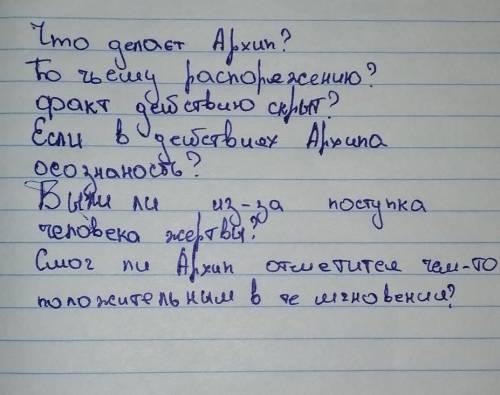 Что делает Архип?
По чьему распоряжению?
факт действию скрыт?
Если в действиях Архипа
осознаность?
Были ли из-за поступка
человека жертвы?
Смог ли Архип отметится чем-то
положительным в те мгновения?